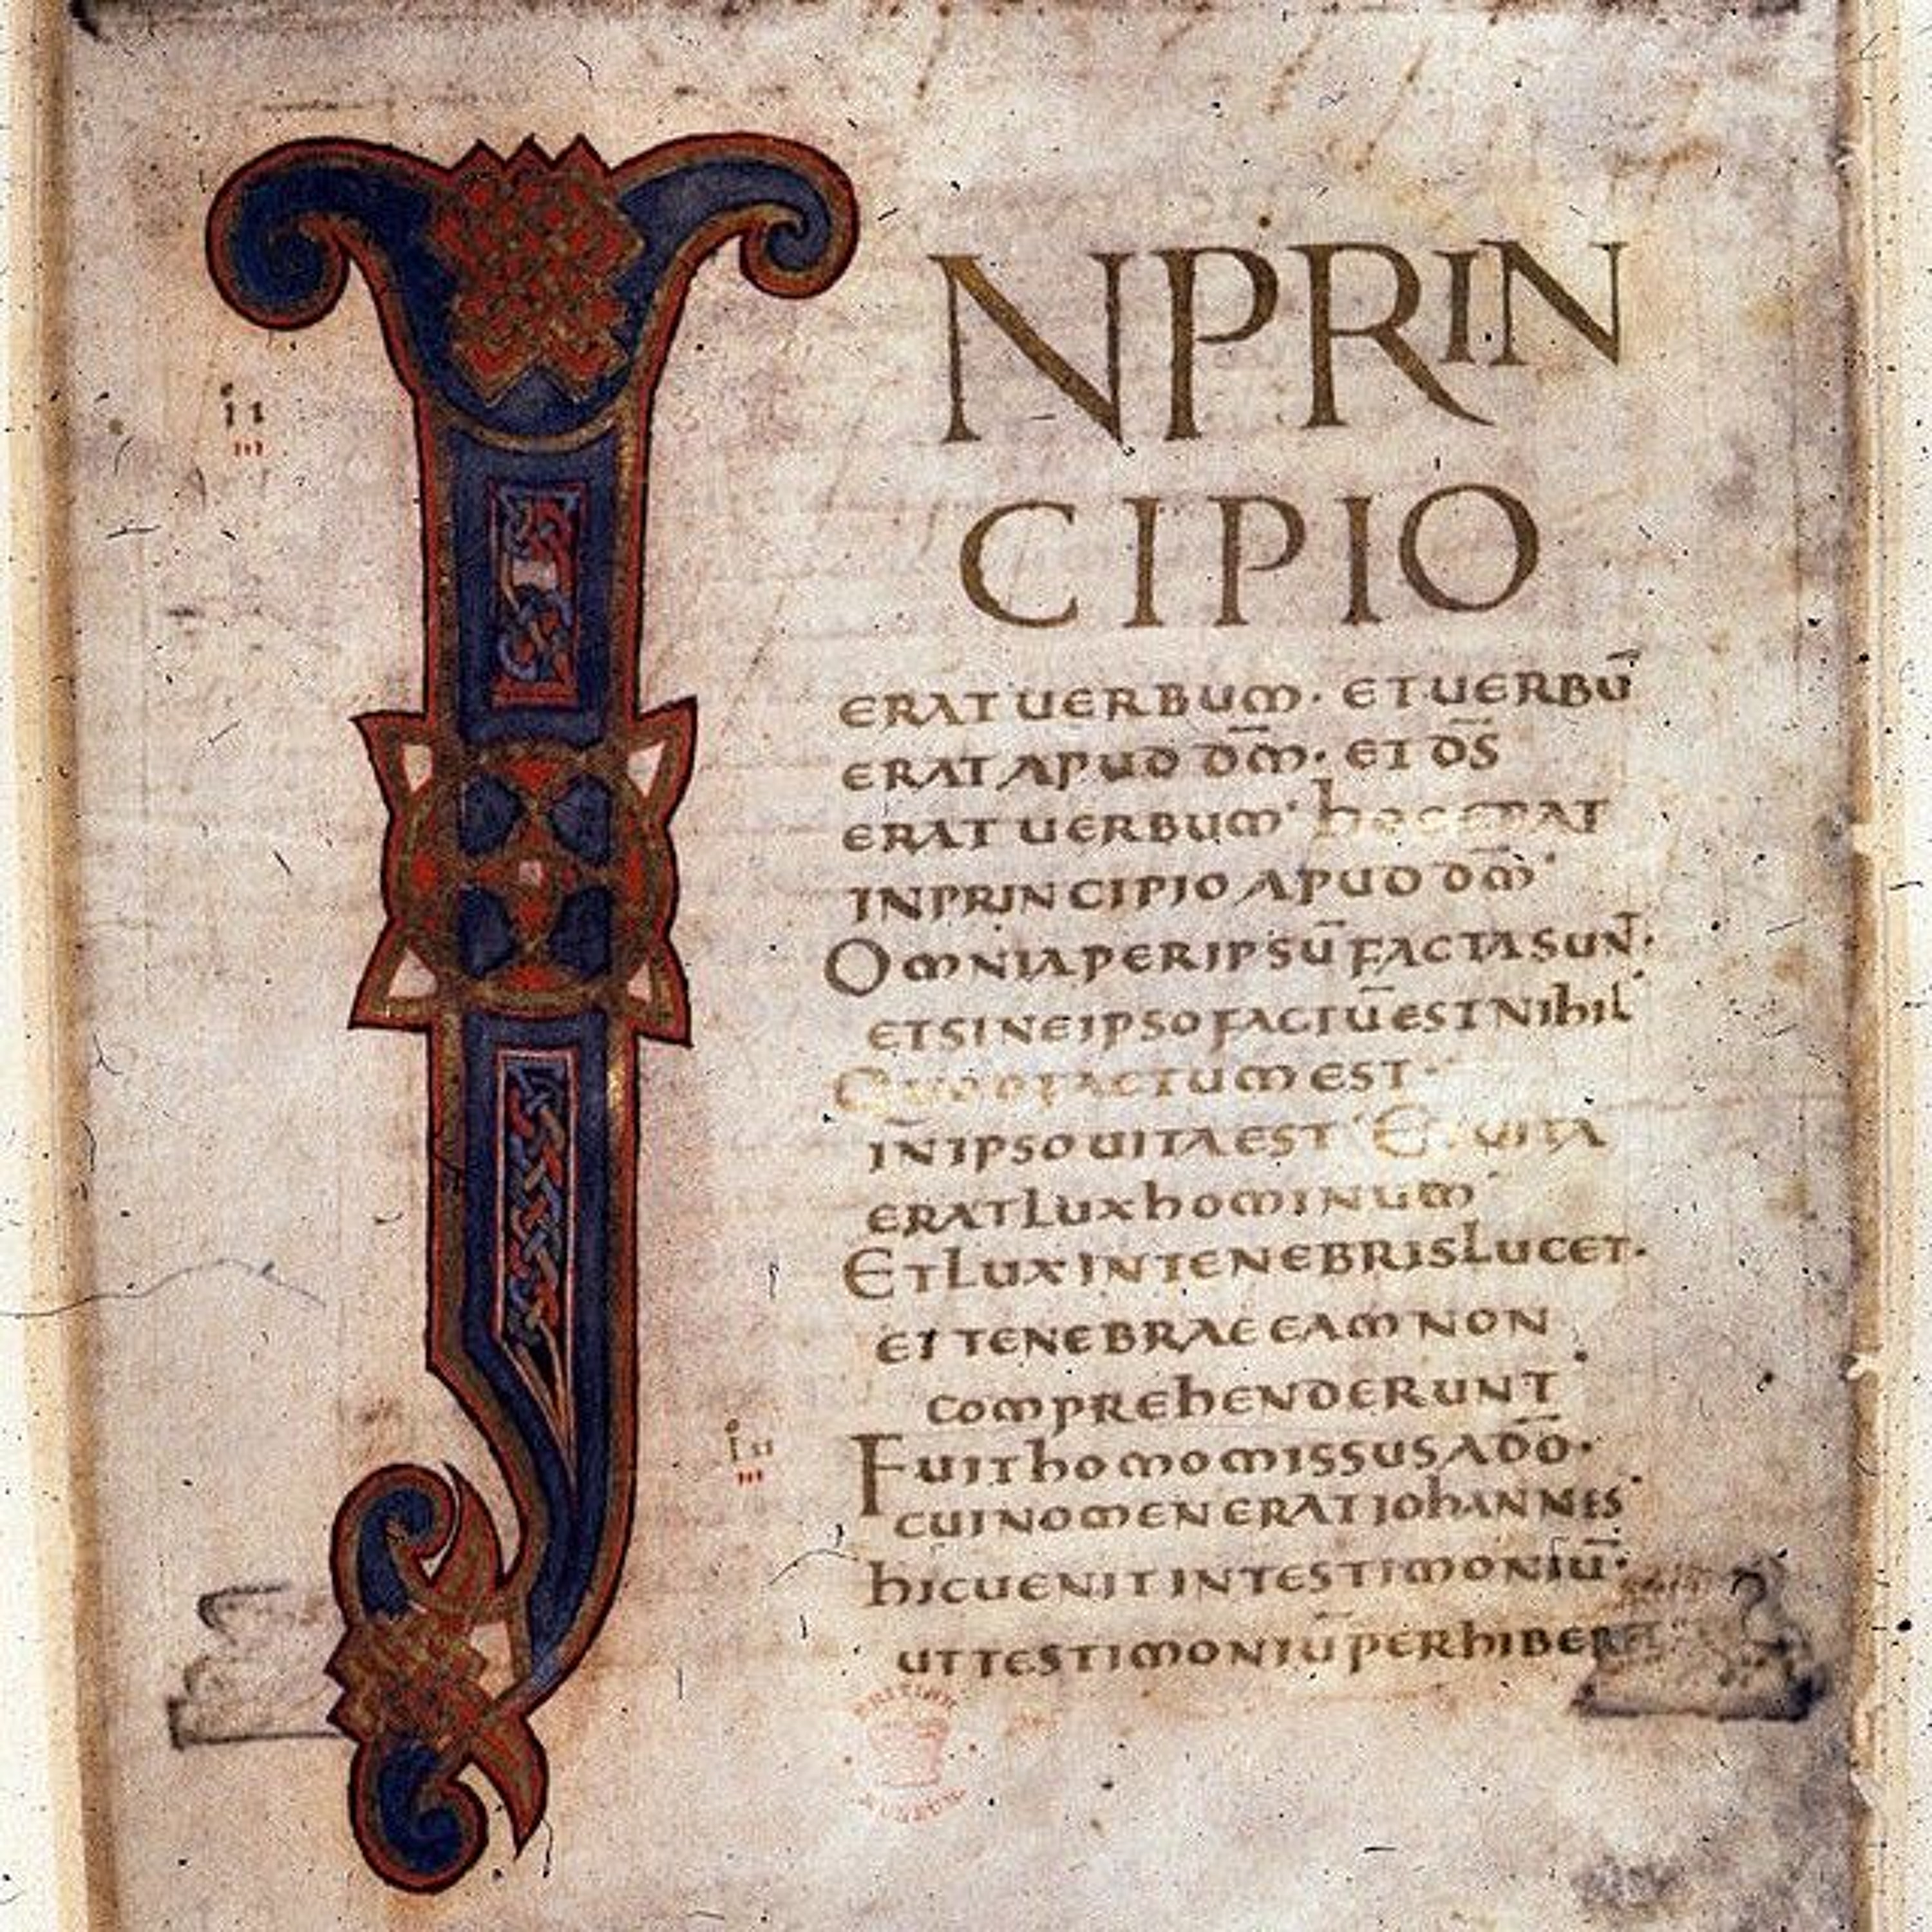 INPRIN
CIPIO
ERAT UERBUM· ET UERBŪ
ERAT APUD DM̄· ET DS̄
ERAT UERBUM· hOC ERAT
IN PRINCIPIO APUD DM̄·
OMNIA PER IPSŪ FACTA SUNT·
ET SINE IPSO FACTŪ EST NIhIL
QUOD FACTUM EST·
IN IPSO UITA EST· ET UITA
ERAT LUX hOMINUM
ET LUX IN TENEBRIS LUCET·
ET TENEBRAE EAM NON
COMPREhENDERUNT
FUIT hOMO MISSUS A DŌ·
CUI NOMEN ERAT IOhANNES
hIC UENIT IN TESTIMONIŪ·
UT TESTIMONIŪ PERhIBERET
BRITISH
MUSEUM